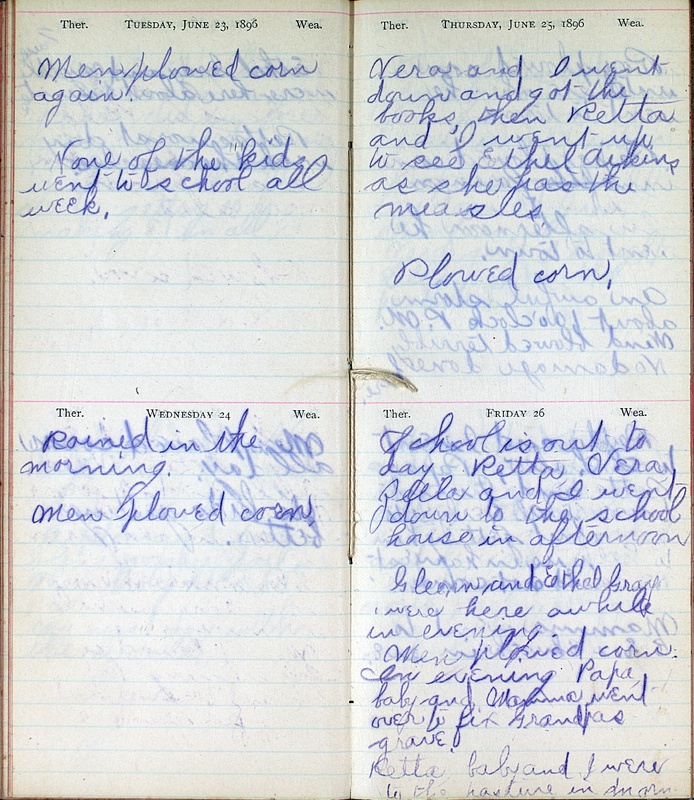 Ther. Tuesday, June 23, 1896 Wea.
Men plowed corn
again.
None of the "kids"
went to school all
week.
Ther. Wednesday 24 Wea.
Rained in the
morning.
Men plowed corn,
Ther. Thursday, June 25, 1896 Wea.
Vera and I went
down and got the
books, then Retta
and I went up
to see Ethel
as she has the
measles
Plowed corn,
Ther. Friday 26 Wea.
School is out to
day Retta, Vera,
and I went
down to the school
house in afternoon
Glenn and Ethel Gray
were here awhile
in evening.
Men plowed corn.
In evening Papa,
baby and Mamma went
over to fix Grandpas
grave.
Retta, baby and I were
to the pasture in morn.